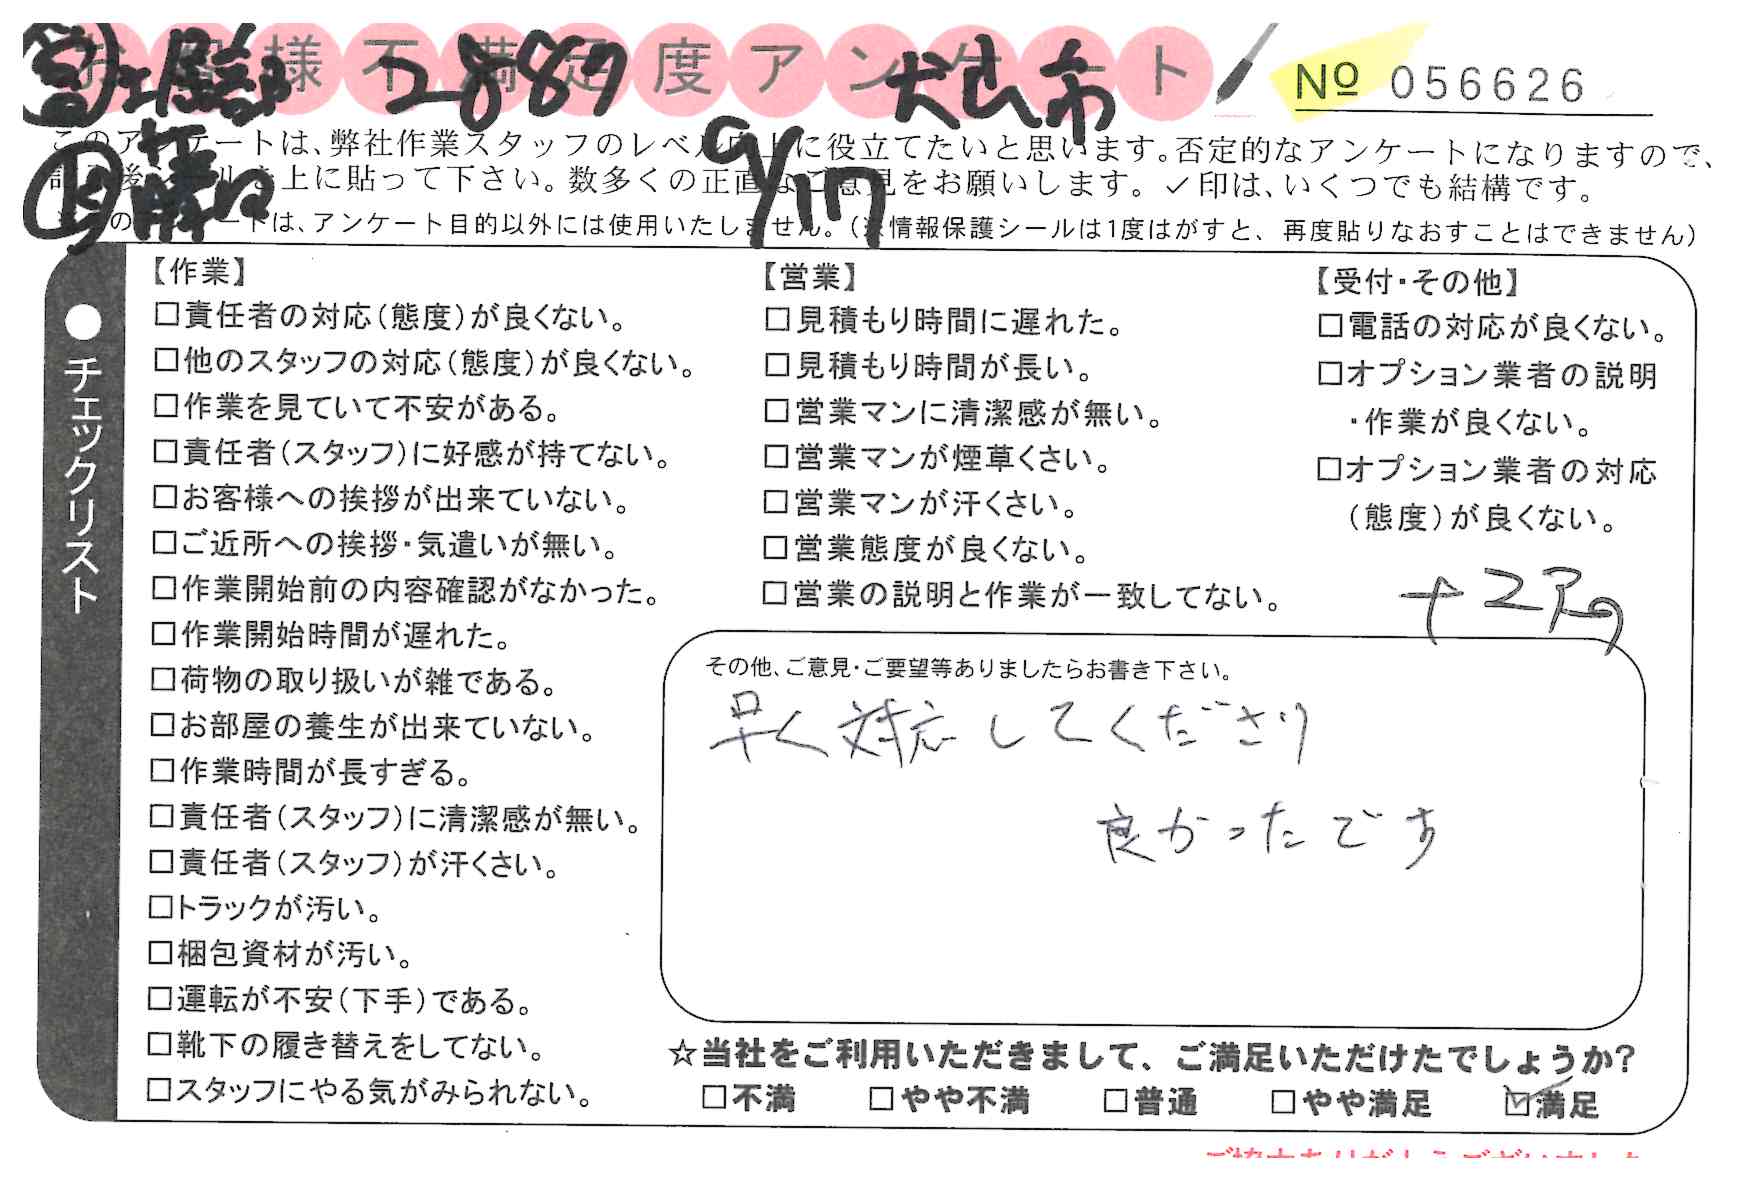 お客様不満足度アンケート
No 056626
2887 犬山市
9/17
このアンケートは、弊社作業スタッフのレベル向上に役立てたいと思います。否定的なアンケートになりますので、
上に貼って下さい。数多くの正直なご意見をお願いします。✓印は、いくつでも結構です。
アンケート目的以外には使用いたしません。(※情報保護シールは1度はがすと、再度貼りなおすことはできません)
●チェックリスト
【作業】
□責任者の対応(態度)が良くない。
□他のスタッフの対応(態度)が良くない。
□作業を見ていて不安がある。
□責任者(スタッフ)に好感が持てない。
□お客様への挨拶が出来ていない。
□ご近所への挨拶・気遣いが無い。
□作業開始前の内容確認がなかった。
□作業開始時間が遅れた。
□荷物の取り扱いが雑である。
□お部屋の養生が出来ていない。
□作業時間が長すぎる。
□責任者(スタッフ)に清潔感が無い。
□責任者(スタッフ)が汗くさい。
□トラックが汚い。
□梱包資材が汚い。
□運転が不安(下手)である。
□靴下の履き替えをしてない。
□スタッフにやる気がみられない。
【営業】
□見積もり時間に遅れた。
□見積もり時間が長い。
□営業マンに清潔感が無い。
□営業マンが煙草くさい。
□営業マンが汗くさい。
□営業態度が良くない。
□営業の説明と作業が一致してない。
【受付・その他】
□電話の対応が良くない。
□オプション業者の説明
・作業が良くない。
□オプション業者の対応
(態度)が良くない。
その他、ご意見・ご要望等ありましたらお書き下さい。
早く対応してくださり
良かったです
☆当社をご利用いただきまして、ご満足いただけたでしょうか?
□不満 □やや不満 □普通 □やや満足 ☑満足